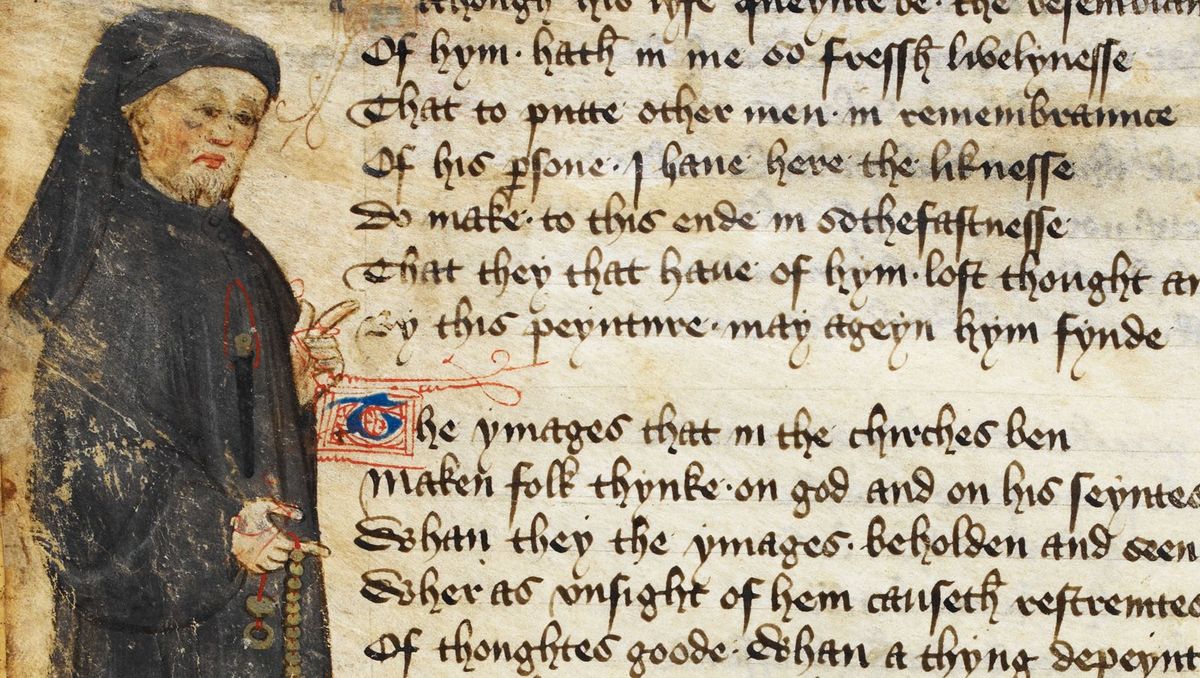 though his lyfe queynte be · the resemblan
Of hym · hath in me so fressh lyvelynesse
That to putte other men · in remembraunce
Of his psone · I have here the liknesse
Do make · to this ende in sothefastnesse
That they that have of hym · lost thought an
By this peynture · may ageyn hym fynde
The ymages that in the chirches ben
Maken folk thynke · on god and on his seyntes
Whan they the ymages · beholden and seen
Wher as unsight of hem causeth restreintes
Of thoughtes goode · Whan a thyng depeynt